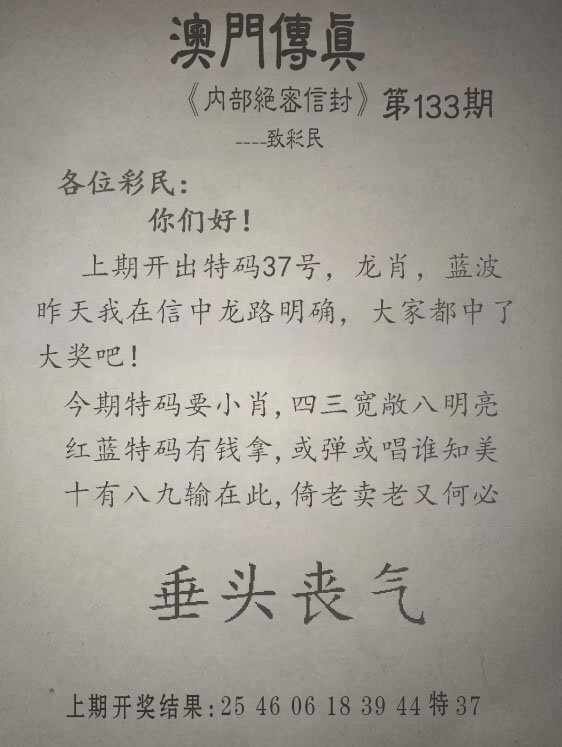 澳門傳眞
《内部絕密信封》第133期
----致彩民
各位彩民:
你们好!
上期开出特码37号，龙肖，蓝波
昨天我在信中龙路明确，大家都中了
大奖吧!
今期特码要小肖,四三宽敞八明亮
红蓝特码有钱拿,或弹或唱谁知美
十有八九输在此,倚老卖老又何必
垂头丧气
上期开奖结果:25 46 06 18 39 44 特 37